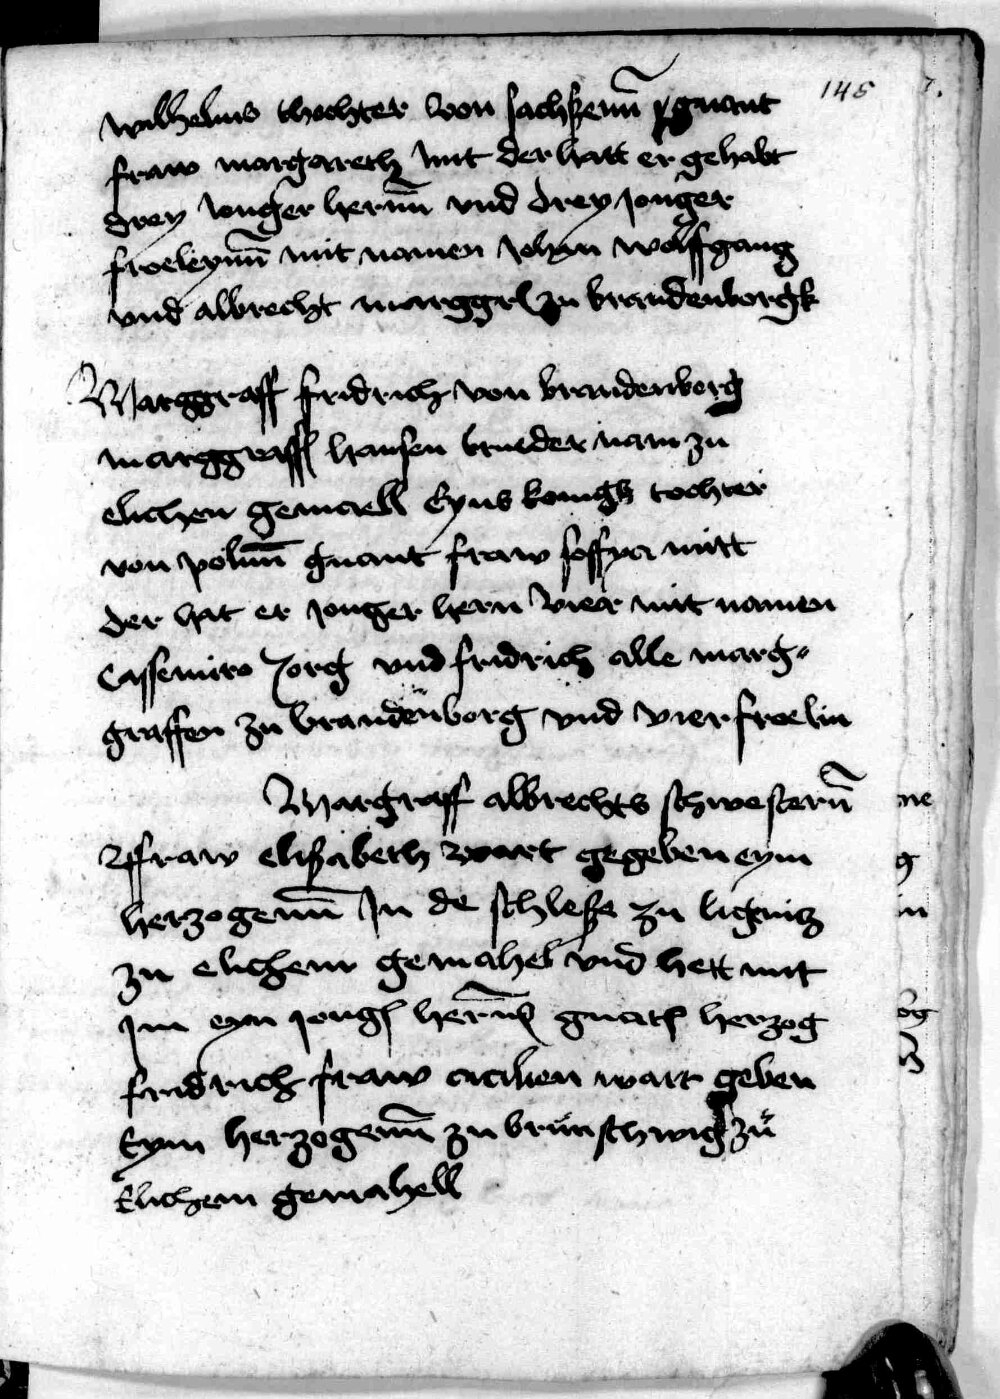 145
wilhelms thochter von sachßenn̄ gnant
fraw margareth mit der hatt er gehabt
drey jonger hernn̄ vnd drey jonger
froeleynn̄ mit namen johan wolffgang
vnd albrecht marggrꝭ zu brandenborgk
Marggraff fridrich von brandenborg
marggraff hansen bruder nam zu
elichen gemaell Eyns konigß tochter
von polnn̄ gnant fraw soffya mitt
der hat er jonger hern vier mit namen
Cassemiro Jorg vnd fridrich alle marg-
graffen zu brandenborg vnd vier froelin
Margraff albrechts schwesternn̄
ffraw elisabeth wart gegeben eym
herzogenn̄ In de schleße zu lignitz
zu elichem gemahel vnd hett mit
jm eyn jongꝭ hern̄ gnatꝭ herzog
fridrich fraw cicilien wart geben
Eym herzogenn̄ zu brunschwig zu
Elichem gemahell